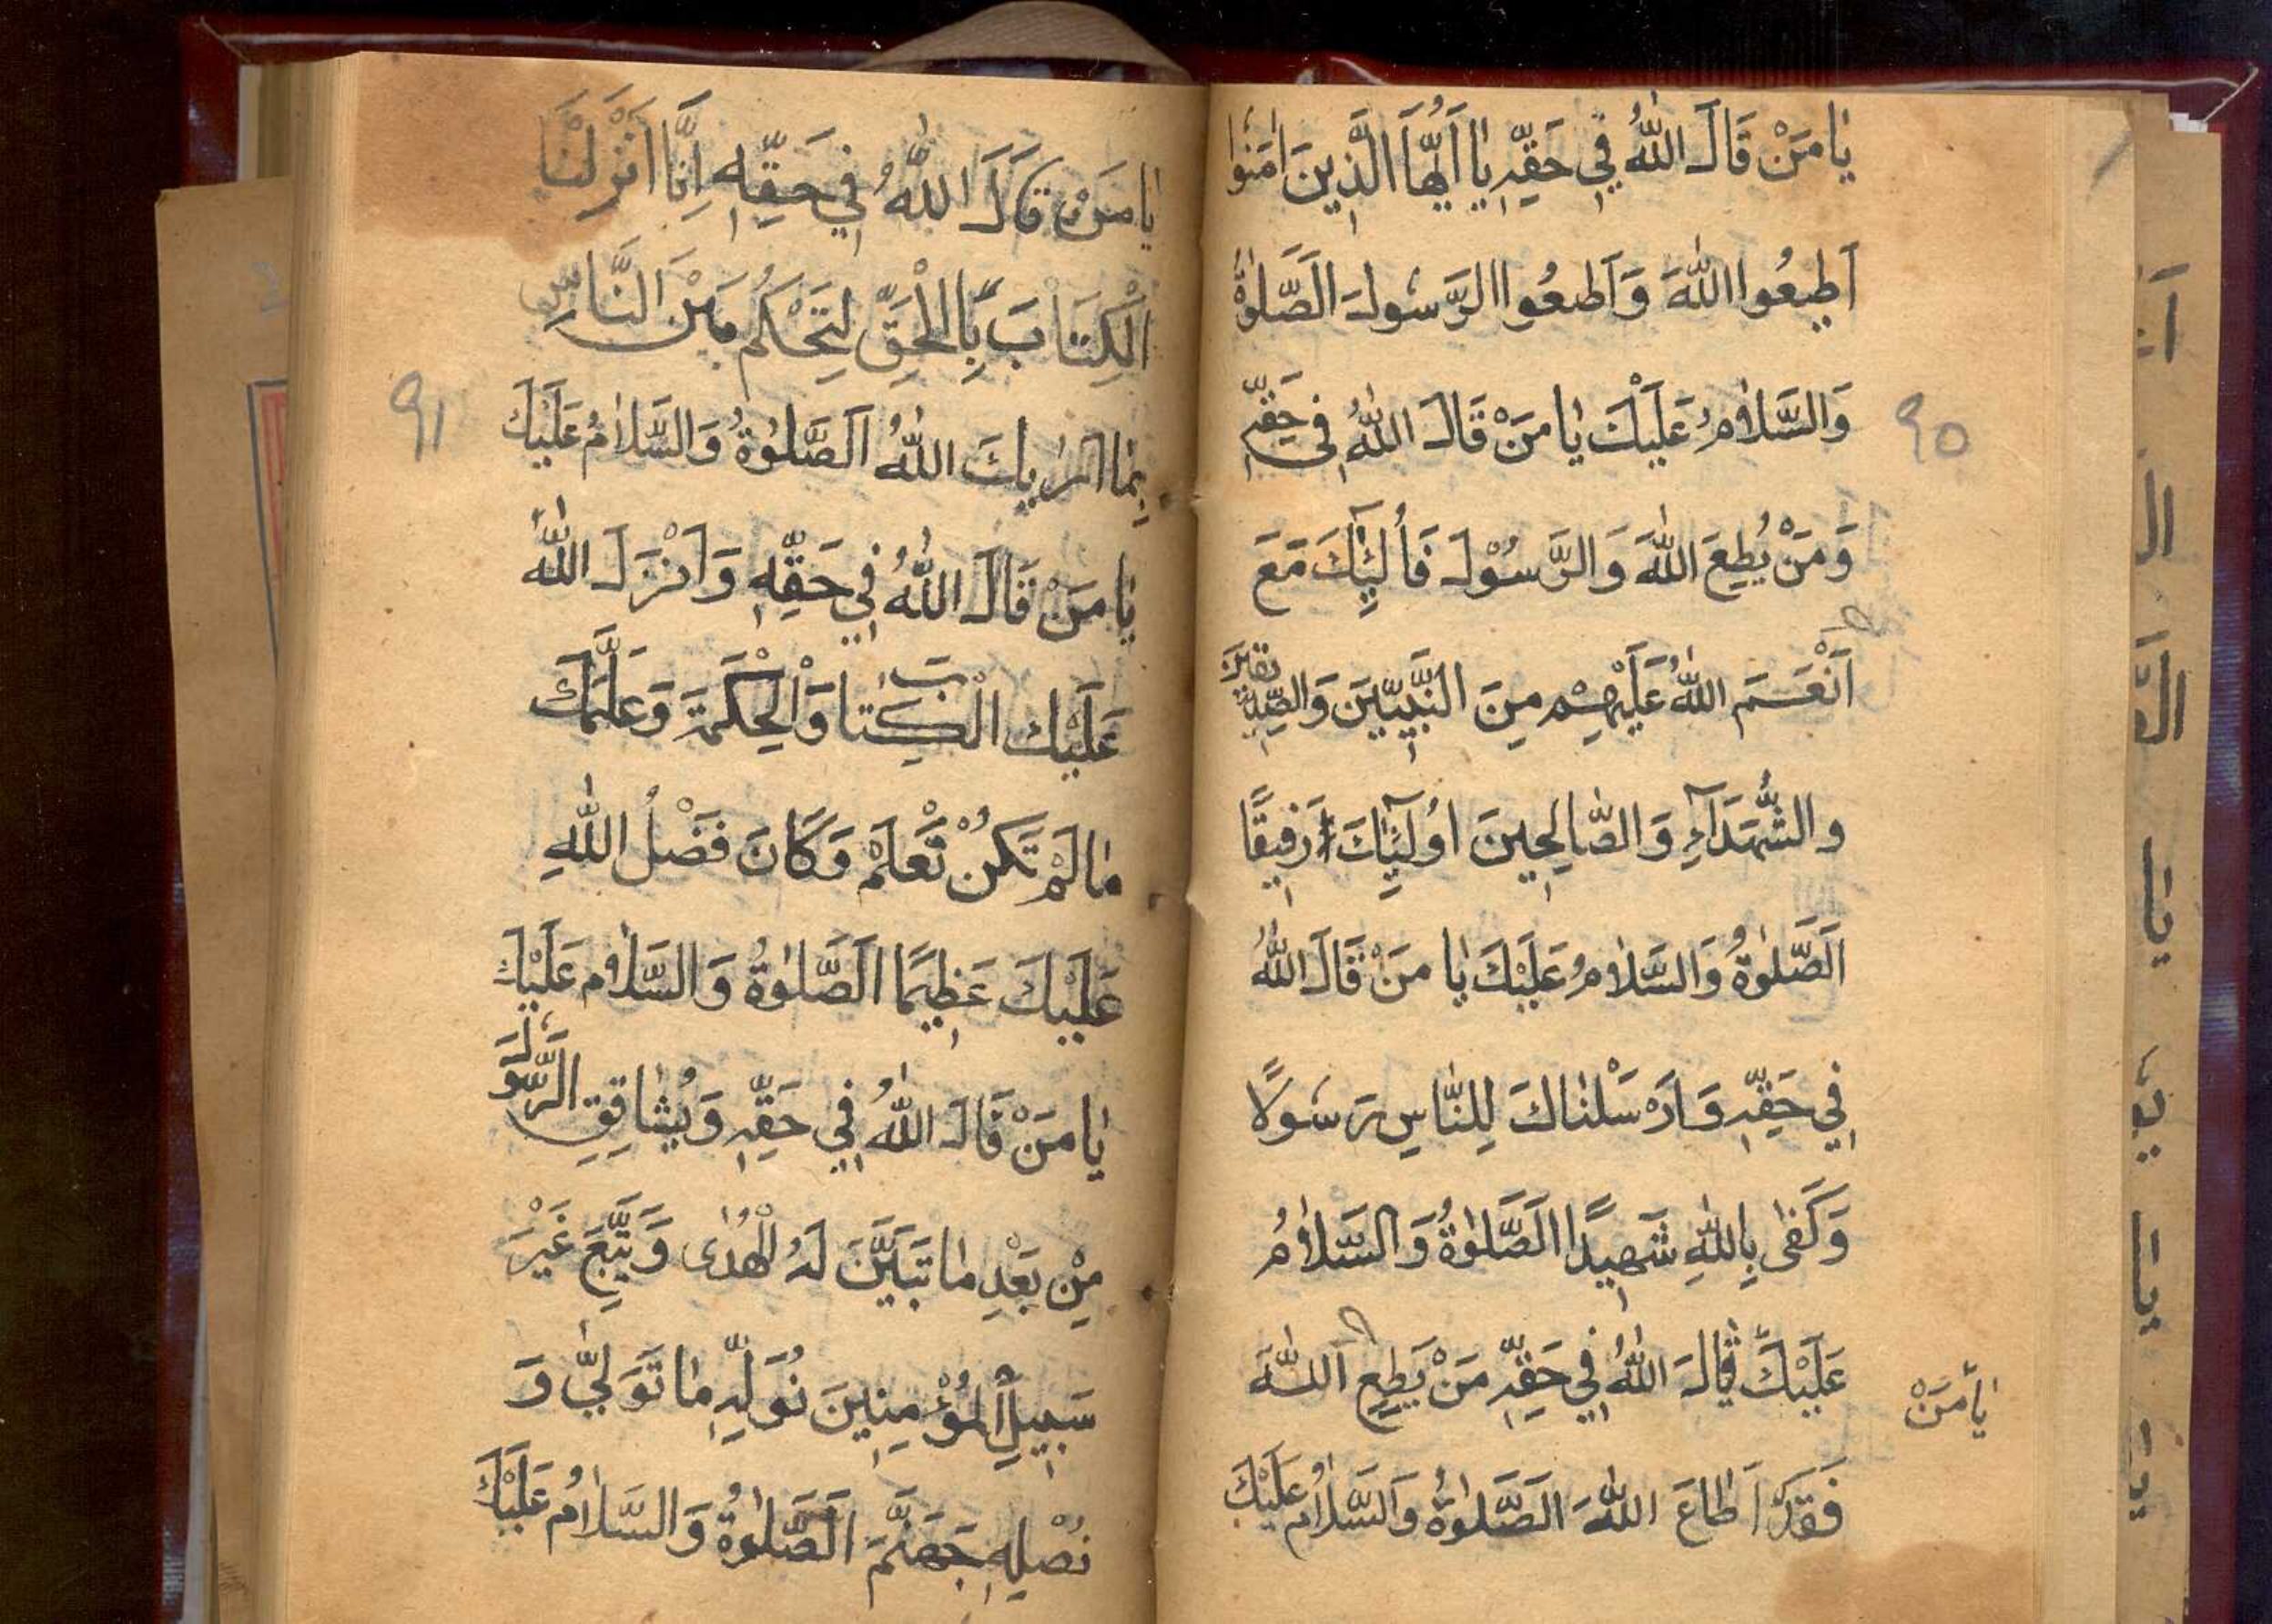 يَا مَنْ قَالَ اللّٰهُ فِي حَقِّهِ يَا اَيُّهَا الَّذِينَ اٰمَنُوا
اَطِيعُوا اللّٰهَ وَاَطِيعُوا الرَّسُولَ اَلصَّلٰوةُ
وَالسَّلَامُ عَلَيْكَ يَا مَنْ قَالَ اللّٰهُ فِي حَقِّهِ
٩٠
وَمَنْ يُطِعَ اللّٰهَ وَالرَّسُوْلَ فَأُلٰئِكَ مَعَ
اَنْعَمَ اللّٰهُ عَلَيْهِمْ مِنَ النَّبِيِّينَ وَالصِّدِّيقِينَ
وَالشُّهَدَآءِ وَالصَّالِحِينَ اُولٰئِكَ رَفِيقًا
اَلصَّلٰوةُ وَالسَّلَامُ عَلَيْكَ يَا مَنْ قَالَ اللّٰهُ
فِي حَقِّهِ وَاَرْسَلْنَاكَ لِلنَّاسِ رَسُولًا
وَكَفٰى بِاللّٰهِ شَهِيدًا اَلصَّلٰوةُ وَالسَّلَامُ
عَلَيْكَ قَالَ اللّٰهُ فِي حَقِّهِ مَنْ يَطِعِ اللّٰهَ
يَا مَنْ
فَقَدْ اَطَاعَ اللّٰهَ اَلصَّلٰوةُ وَالسَّلَامُ عَلَيْكَ
يَا مَنْ قَالَ اللّٰهُ فِي حَقِّهِ اِنَّا اَنْزَلْنَا
الْكِتَابَ بِالْحَقِّ لِتَحْكُمَ بَيْنَ النَّاسِ
بِمَا اَرٰيكَ اللّٰهُ اَلصَّلٰوةُ وَالسَّلَامُ عَلَيْكَ
٩١
يَا مَنْ قَالَ اللّٰهُ فِي حَقِّهِ وَاَنْزَلَ اللّٰهُ
عَلَيْكَ الْكِتَابَ وَالْحِكْمَةَ وَعَلَّمَكَ
مَا لَمْ تَكُنْ تَعْلَمْ وَكَانَ فَضْلُ اللّٰهِ
عَلَيْكَ عَظِيمًا اَلصَّلٰوةُ وَالسَّلَامُ عَلَيْكَ
يَا مَنْ قَالَ اللّٰهُ فِي حَقِّهِ وَيُشَاقِقِ الرَّسُولَ
مِنْ بَعْدِ مَا تَبَيَّنَ لَهُ الْهُدٰى وَيَتَّبِعَ غَيْرَ
سَبِيلِ الْمُؤْمِنِينَ نُوَلِّهِ مَا تَوَلّٰي وَ
نُصْلِهِ جَهَنَّمَ اَلصَّلٰوةُ وَالسَّلَامُ عَلَيْكَ